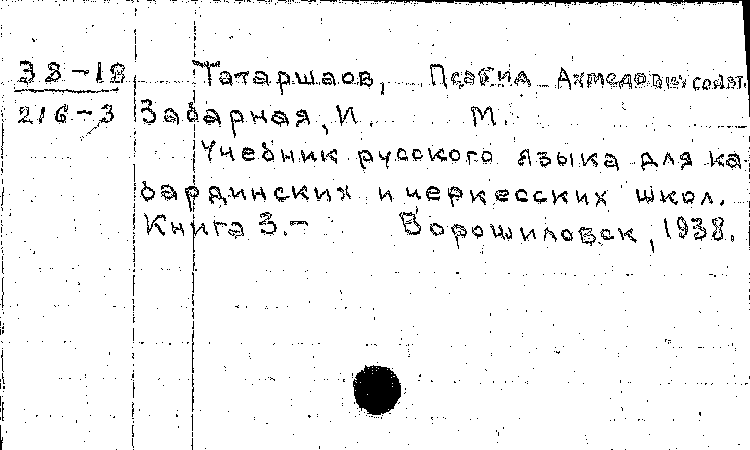 38-18 Татаршаов, Псабид Ахмедович соавт.
216-3 Забарная, И. М.
Учебник русского языка для ка-
бардинских и черкесских школ.
Книга 3.- Ворошиловск, 1938.